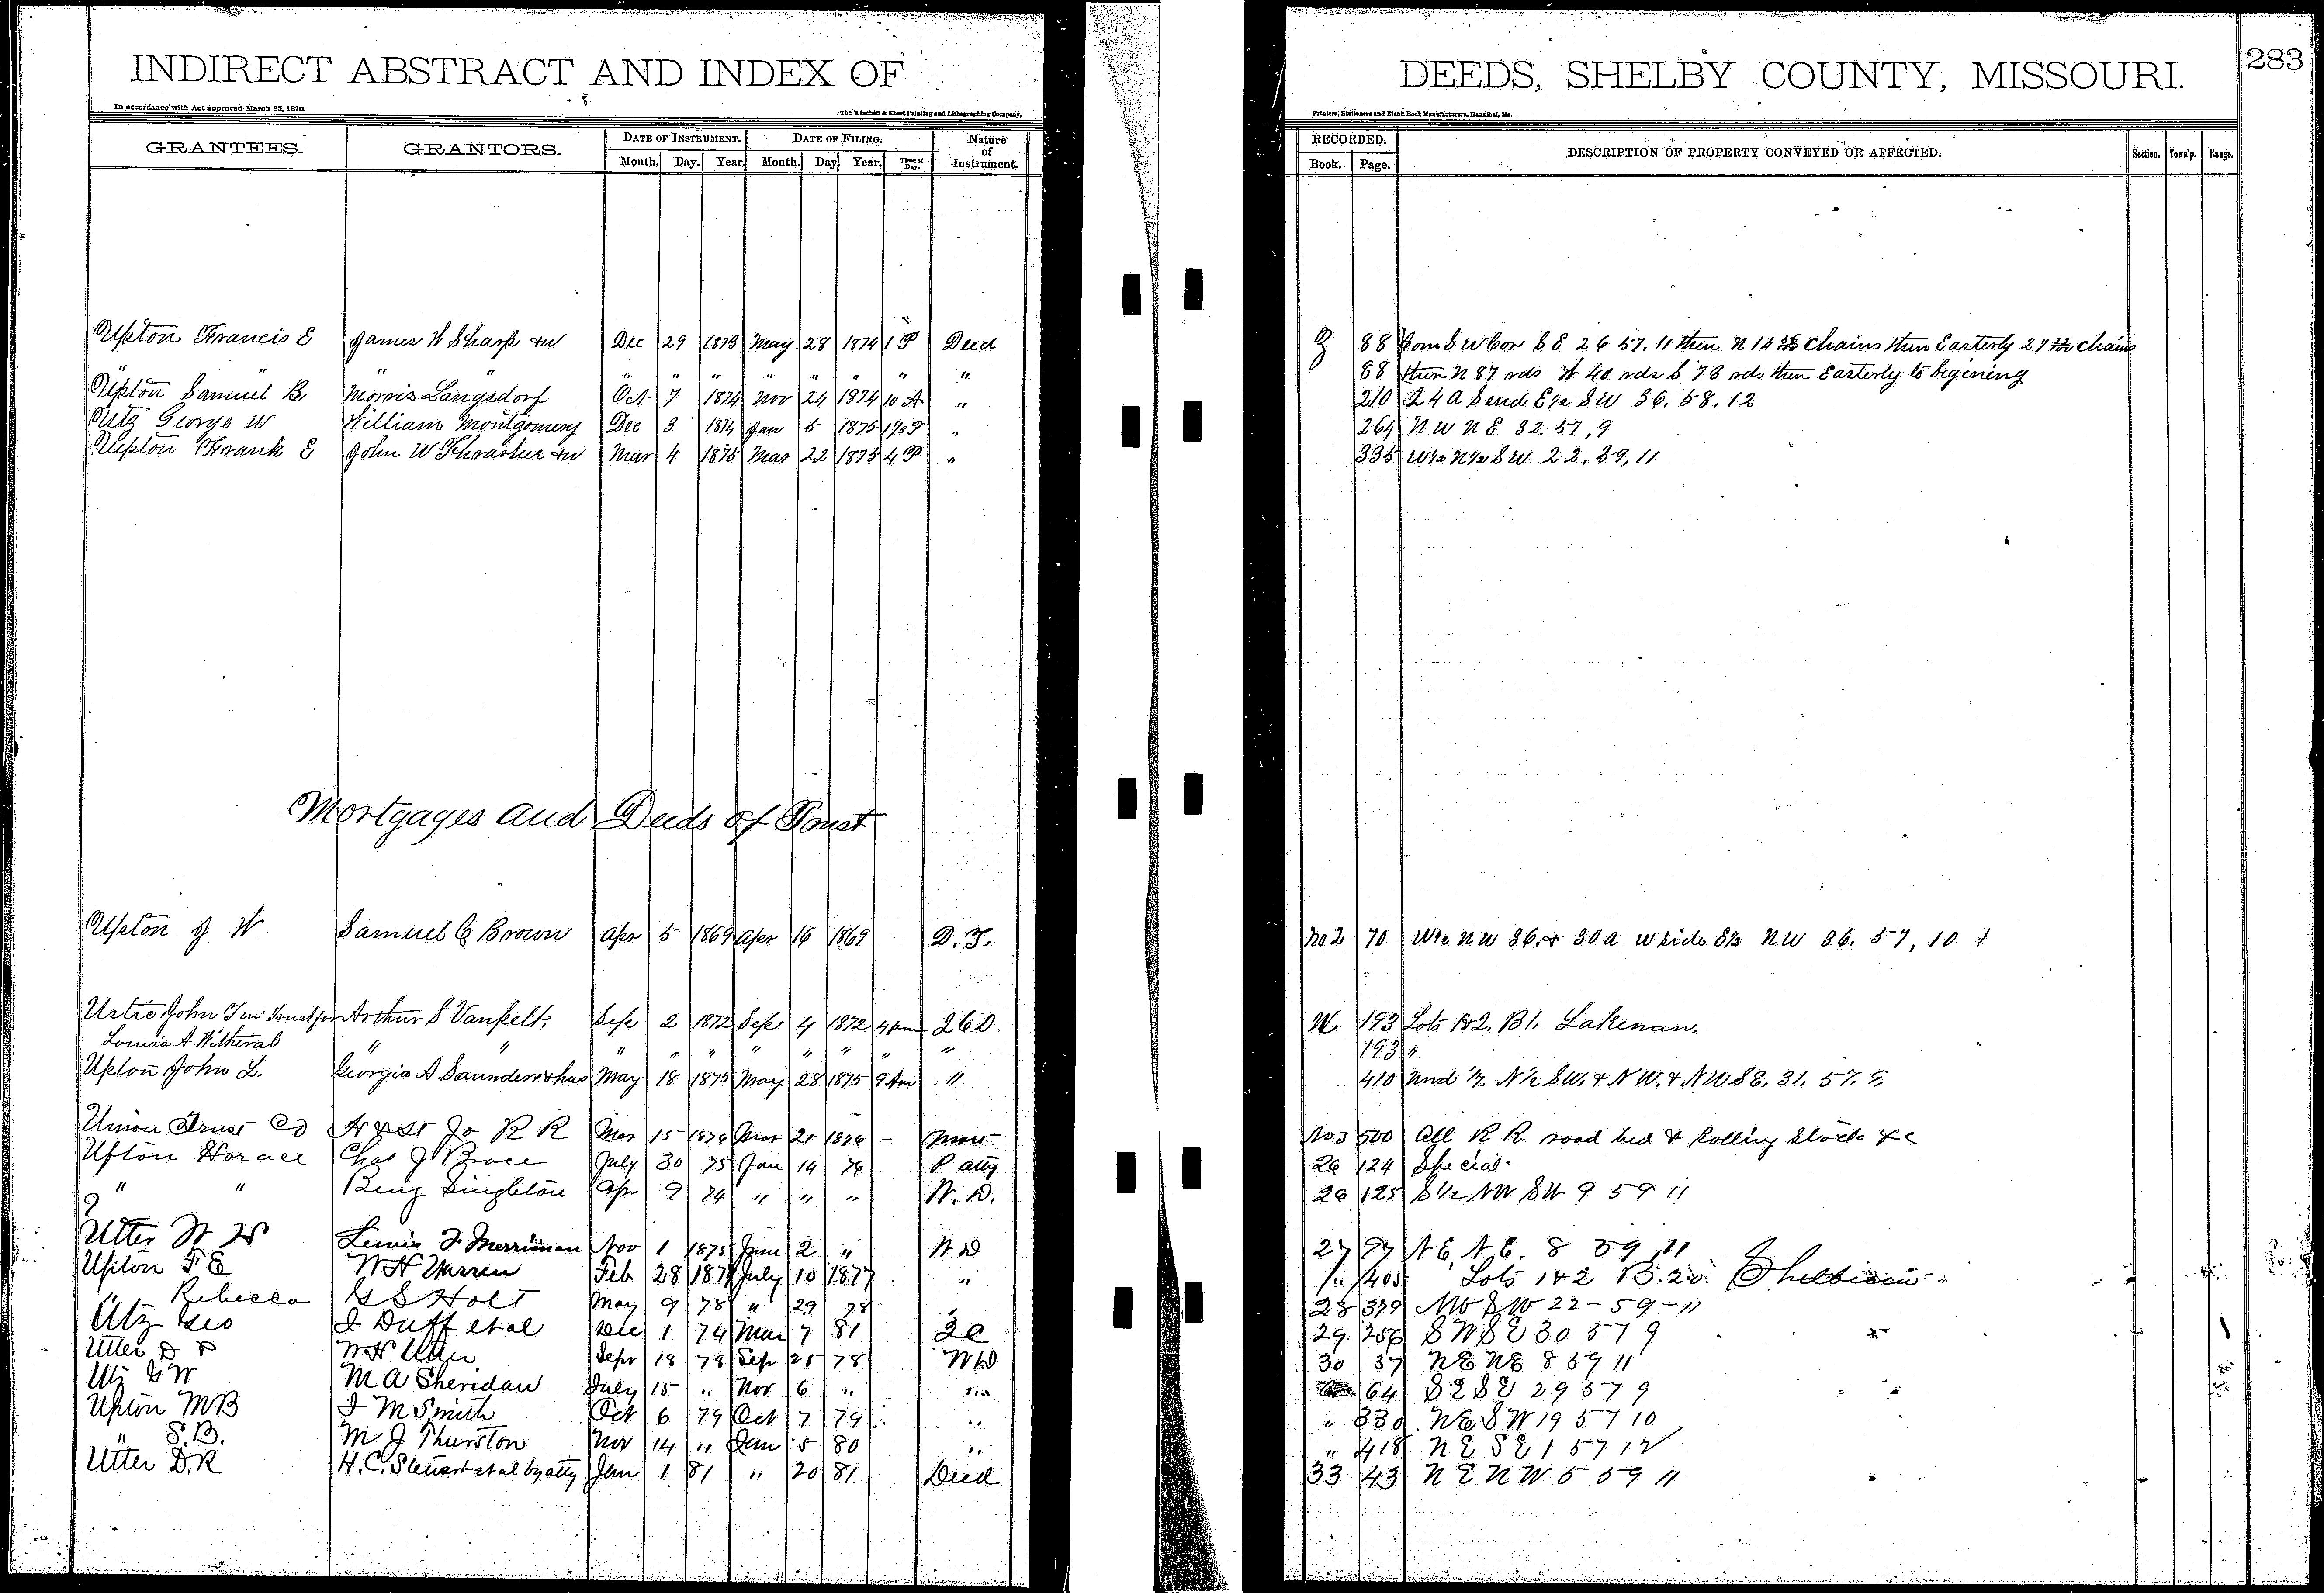 INDIRECT ABSTRACT AND INDEX OF DEEDS, SHELBY COUNTY, MISSOURI. 283
In accordance with Act approved March 25, 1870. The Winchell & Ebert Printing and Lithographing Company, Printers, Stationers and Blank Book Manufacturers, Hannibal, Mo.
GRANTEES. GRANTORS. DATE OF INSTRUMENT. DATE OF FILING. Nature of Instrument. RECORDED. DESCRIPTION OF PROPERTY CONVEYED OR AFFECTED. Section. Town'p. Range.
Month. Day. Year. Month. Day. Year. Time of Day. Book. Page.
Upton Francis E James W Sharp &w Dec 29 1873 May 28 1874 1 P Deed 88 Com S W Cor S E 26 57. 11 then N 14 chains then Easterly 27 chains
" " " " " " " " " 88 then N 87 rds W 40 rds S 78 rds then Easterly to begining
Upton Samuel B Morris Langsdorf Oct 7 1874 Nov 24 1874 10 A " 210 24 a S end E½ SW 36. 58. 12
Utz George W William Montgomery Dec 3 1874 Jan 5 1875 P " 264 NW NE 32. 57, 9
Upton Frank E John W Thrasher &w Mar 4 1875 Mar 22 1875 4 P " 335 W½ N½ SW 22, 59, 11
Mortgages and Deeds of Trust
Upton J W Samuel C Brown Apr 5 1869 Apr 16 1869 D. T. No 2 70 W½ NW 36. & 30 a W side E½ NW 36. 57, 10
Ustic John T in Trust for Arthur S Vanpelt. Sept 2 1872 Sept 4 1872 4 pm 193 Lots 1&2. B1. Lakenan.
Louisa A Witheral " " " " " " " " " " 193 "
Upton John L. Georgia A Saunders & hus May 18 1875 May 28 1875 9 Am " 410 Und N½ SW. & NW. & NW SE. 31. 57. 9
Union Trust Co H & St Jo R R Mar 15 1876 Mar 21 1876 - Mort No 3 500 All R R road bed & Rolling Stock &c
Upton Horace Chas J July 30 75 Jan 14 76 P atty 26 124 Special
" " Benj Singleton Apr 9 74 " " " W. D. 26 125 S½ NW SW 9 59 11
Utter W Lewis F Merriman Nov 1 1875 June 2 " W D 27 NE NE. 8 59 11
Upton F E W H Warren Feb 28 187 July 10 1877 " " 405 Lots 1&2 B. 20. Shelbina
" Rebecca Holt May 9 78 " 29 78 28 379 SW 22-59-11
Utz Geo Duff et al Dec 1 74 Mar 7 81 29 256 SW SE 30 57 9
Utter D W H Utter Sept 18 78 Sep 25 78 WD 30 37 NE NE 8 59 11
Utz G W M A Sheridan July 15 " Nov 6 " " 64 SE SE 29 57 9
Upton M B M Smith Oct 6 79 Oct 7 79 " " 330 NE SW 19 57 10
" S. B. M J Thurston Nov 14 " Jan 5 80 " " 418 NE SE 1 57 12
Utter D. R H. C. Stewart et al by atty Jan 1 81 " 20 81 Deed 33 43 NE NW 5 59 11